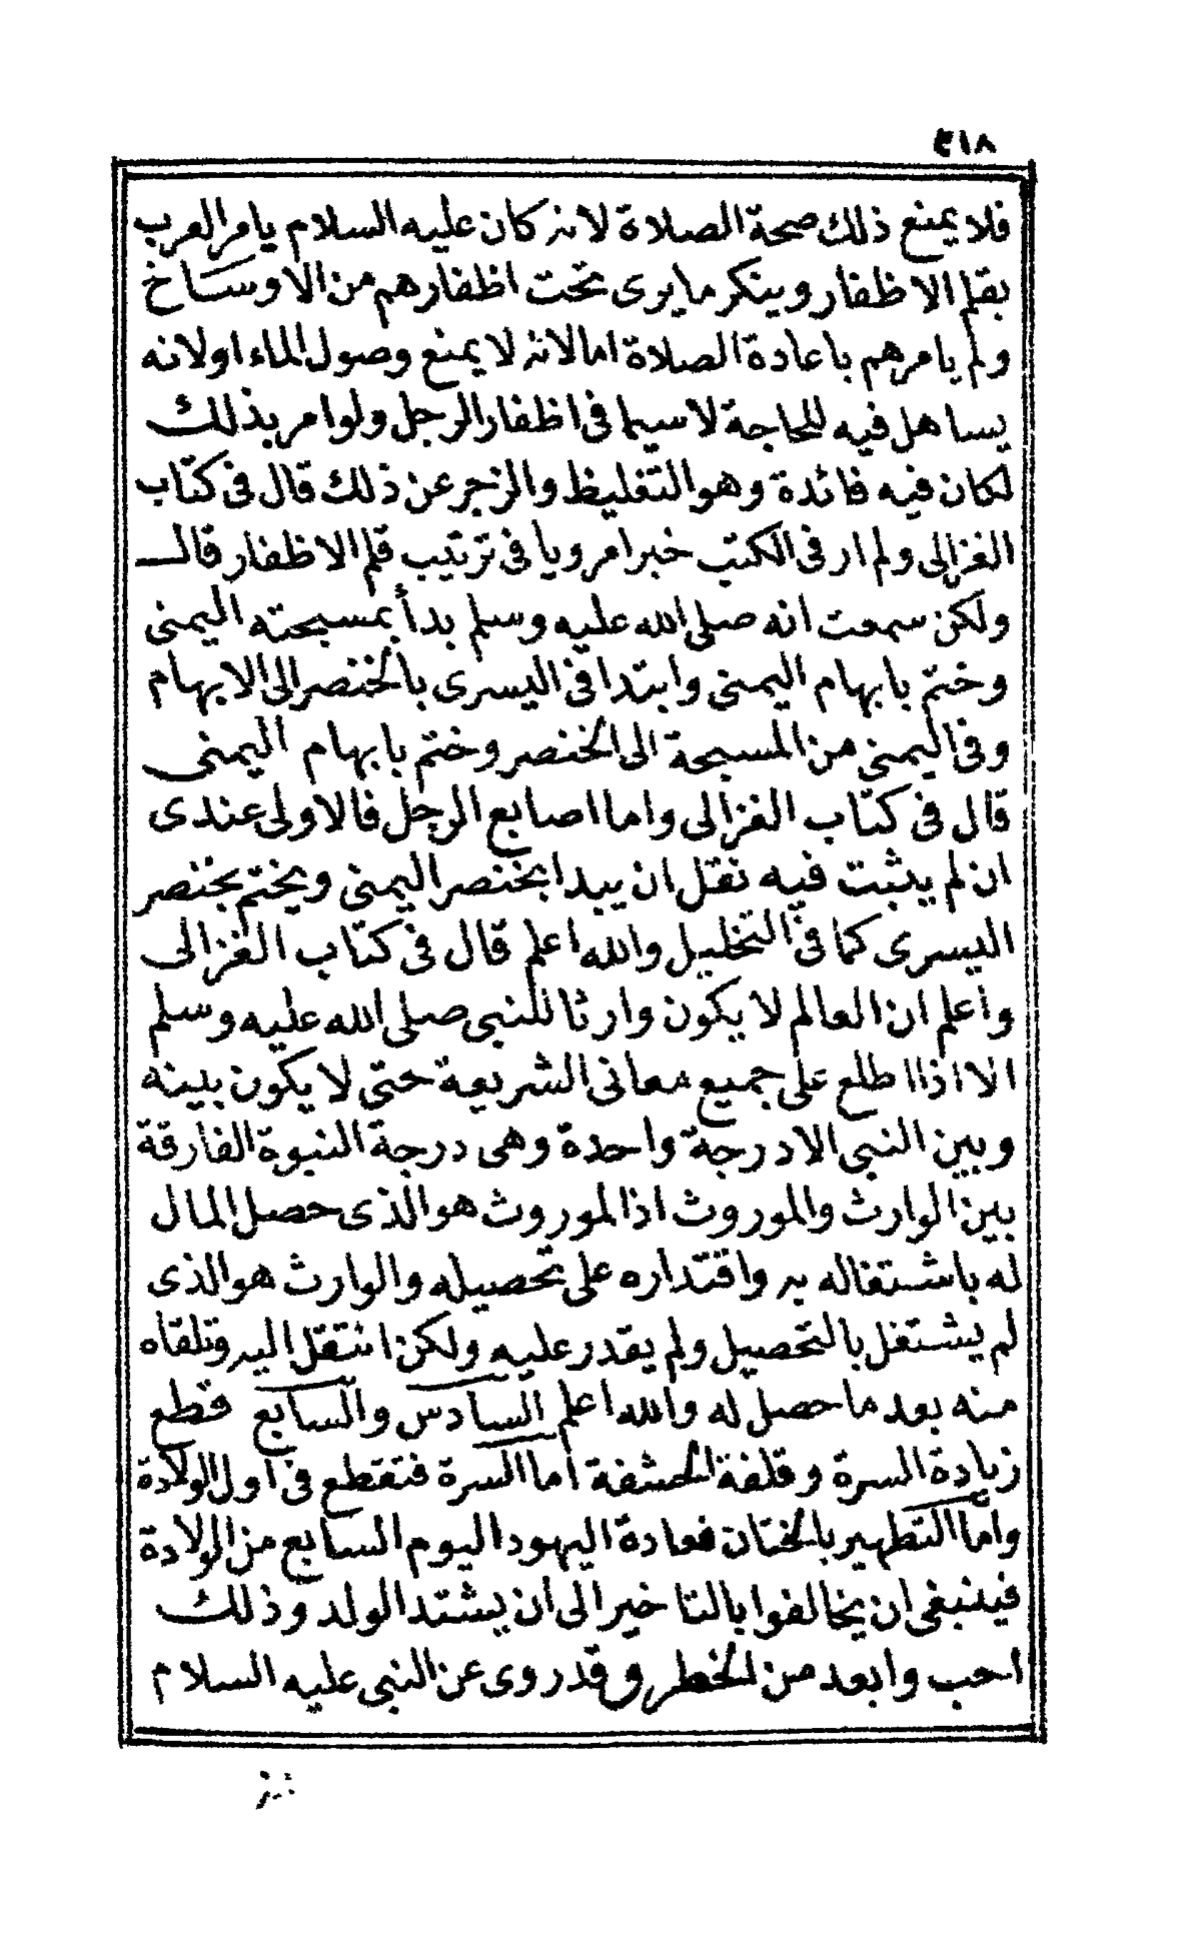 ٣١٨
فلا يمنع ذلك صحة الصلاة لانه كان عليه السلام يامر العرب
بقلم الاظفار وينكر ما يرى تحت اظفارهم من الاوساخ
ولم يامرهم باعادة الصلاة اما لانه لا يمنع وصول الماء اولانه
يساهل فيه للحاجة لاسيما فى اظفار الرجل ولوامر بذلك
لكان فيه فائدة وهو التغليظ والزجر عن ذلك قال فى كتاب
الغزالى ولم ار فى الكتب خبرا مرويا فى ترتيب قلم الاظفار قال
ولكن سمعت انه صلى الله عليه وسلم بدأ بمسبحته اليمنى
وختم بابهام اليمنى وابتدا فى اليسرى بالخنصر الى الابهام
وفى اليمنى من المسبحة الى الخنصر وختم بابهام اليمنى
قال فى كتاب الغزالى واما اصابع الرجل فالاولى عندى
ان لم يثبت فيه نقل ان يبدا بخنصر اليمنى ويختم بخنصر
اليسرى كما فى التخليل والله اعلم قال فى كتاب الغزالى
واعلم ان العالم لا يكون وارثا للنبى صلى الله عليه وسلم
الا اذا اطلع على جميع معانى الشريعة حتى لا يكون بينه
وبين النبى الا درجة واحدة وهى درجة النبوة الفارقة
بين الوارث والموروث اذ الموروث هو الذى حصل المال
له باشتغاله به واقتداره على تحصيله والوارث هو الذى
لم يشتغل بالتحصيل ولم يقدر عليه ولكن انتقل اليه وتلقاه
منه بعد ما حصل له والله اعلم السادس والسابع قطع
زيادة السرة وقلفة الحشفة اما السرة فتقطع فى اول الولادة
واما التطهير بالختان فعادة اليهود اليوم السابع من الولادة
فينبغى ان يخالفوا بالتاخير الى ان يشتد الولد وذلك
احب وابعد من الخطر وقد روى عن النبى عليه السلام